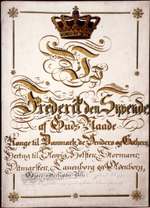 Vi
Frederik den Syvende
af Guds Naade
Konge til Danmark, de Venders og Gothers,
Hertug til Slesvig, Holsten, Stormarn,
Ditmarsken, Lauenborg og Oldenborg,